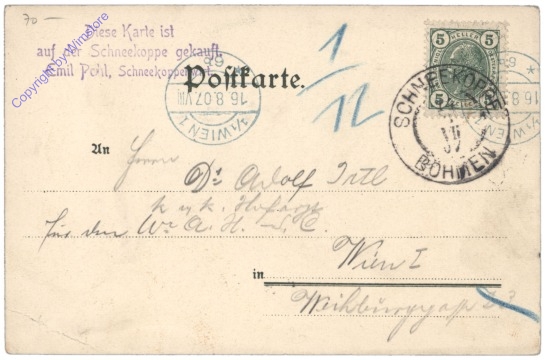 70 -
Diese Karte ist
auf der Schneekoppe gekauft.
Emil Pohl, Schneekoppenwirt.
Copyright by Wimstore
Postkarte.
1
12
5 HELLER 5
5 5
SCHNEEKOPPE
VII
07
BÖHMEN
1/1 WIEN 1
16.8.07.VIII
1/1 WIEN
16.8.
An Herrn
Dr. Adolf Irtl
k. u. k. Hofarzt
für den W. A. H. C.
in Wien I
Weihburggasse